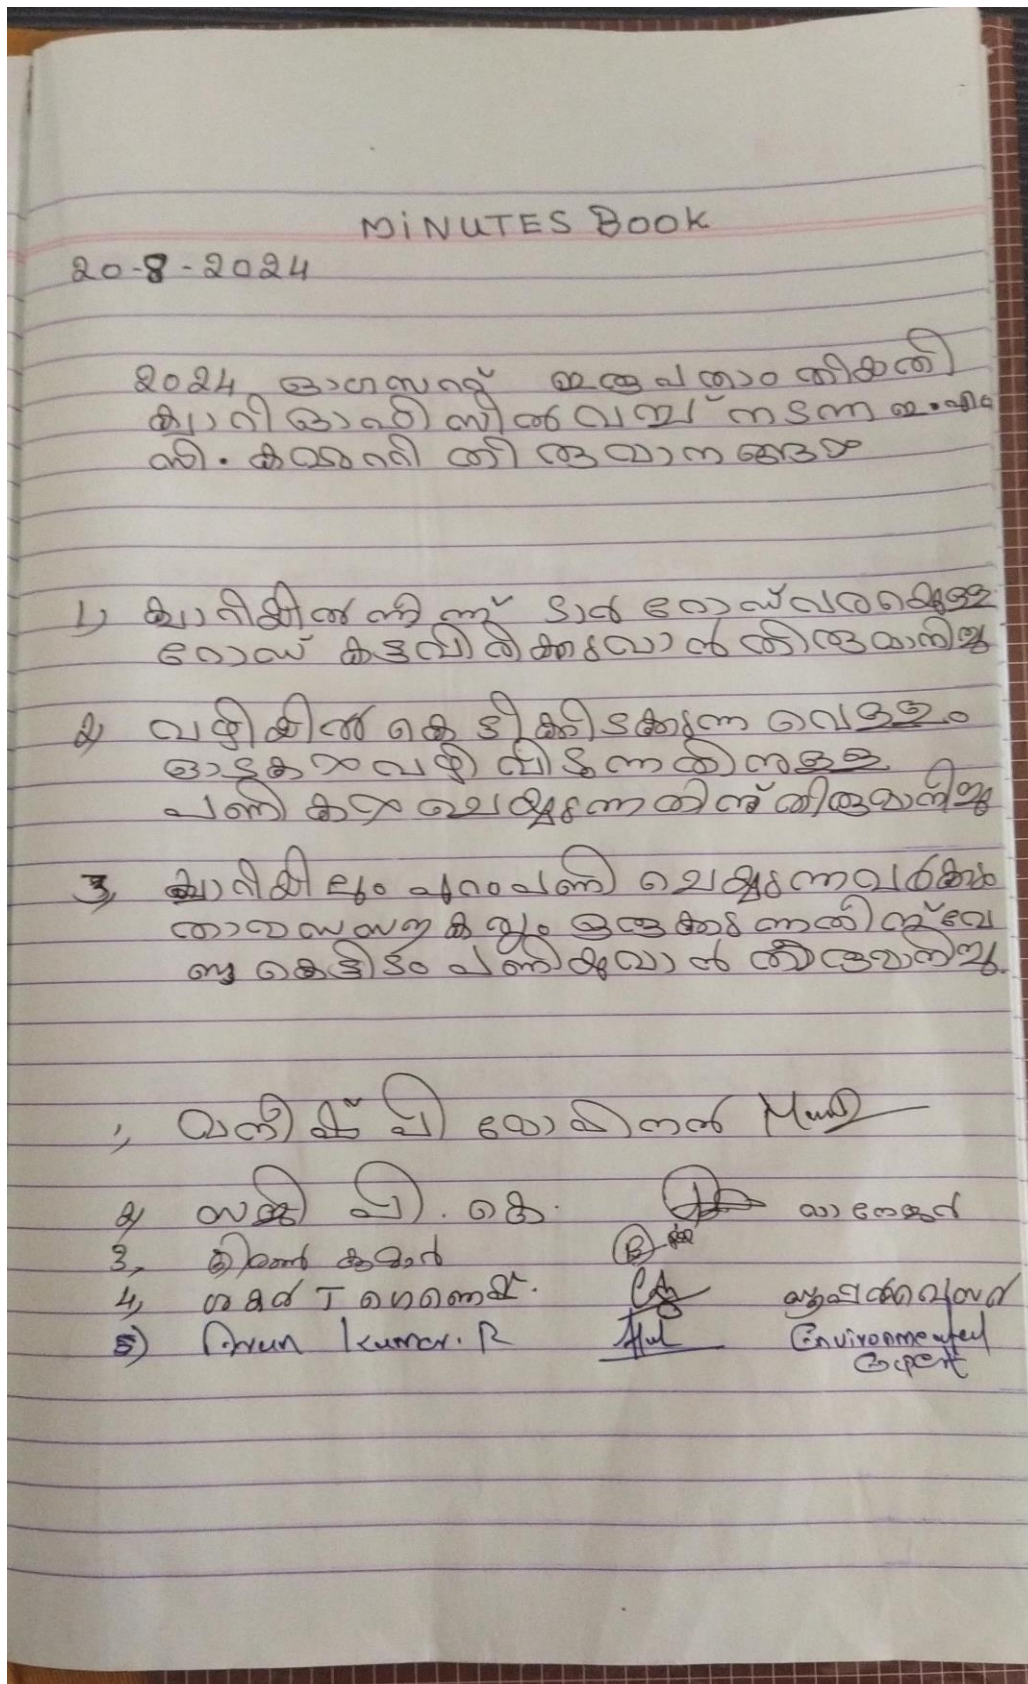 MiNUTES BOOK
20-8-2024
2024 ഓഗസറ്റ് ഇരുപതാം തിയതി
ക്വാറി ഓഫീസിൽ വെച്ച് നടന്ന ഇ.എം
സി. കമ്മറ്റി തീരുമാനങ്ങൾ
1, ക്വാറിയിൽ നിന്ന് ടാർ റോഡ് വരെയുള്ള
റോഡ് കട്ടവിരിക്കുവാൻ തീരുമാനിച്ചു
2, വഴിയിൽ കെട്ടികിടക്കുന്ന വെള്ളം
ഓടകൾ വഴി വിടുന്നതിനുള്ള
പണികൾ ചെയ്യുന്നതിന് തീരുമാനിച്ചു
3, ക്വാറിയിലും പുറംപണി ചെയ്യുന്നവർക്കും
താമസസൗകര്യം ഒരുക്കുന്നതിന് വേ
ണ്ടി കെട്ടിടം പണിയുവാൻ തീരുമാനിച്ചു.
1, മനീഷ് പി മോഹനൻ
2, സജി പി. കെ. മാനേജർ
3, കിരൺ കുമാർ
4, T സൂപ്പർവൈസർ
5) Arun Kumar. R Environmental
Expert